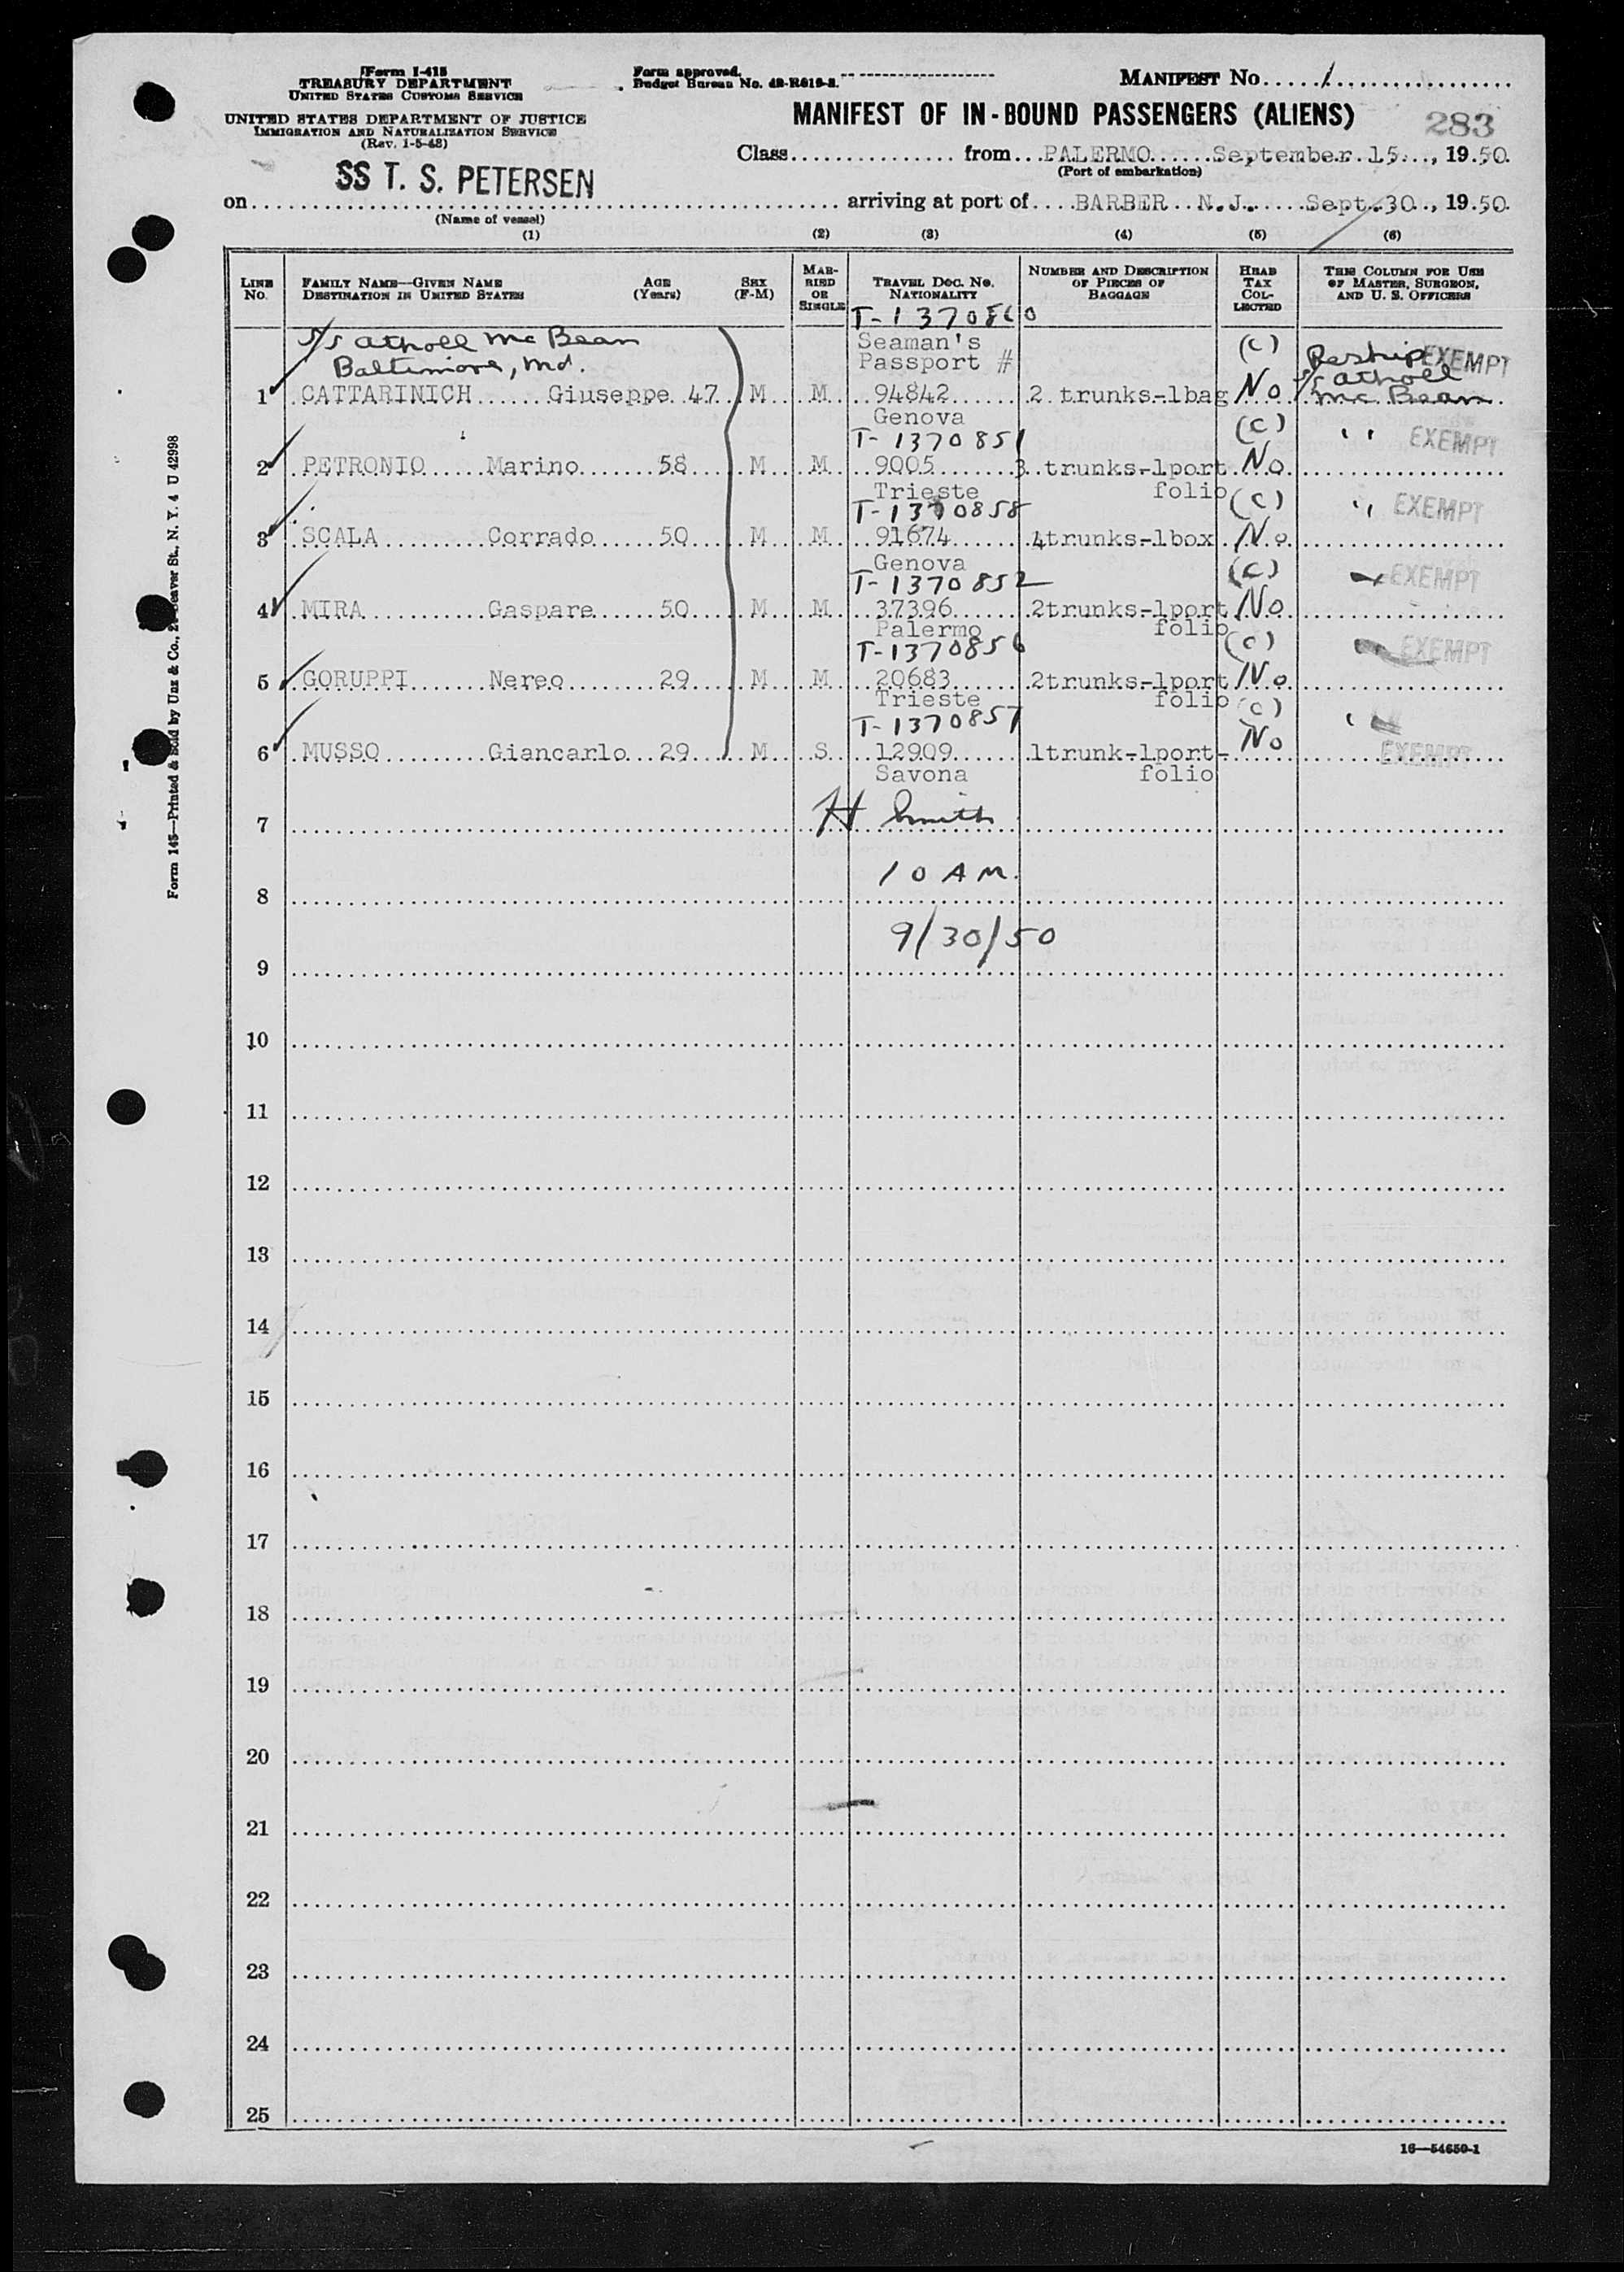 Form I-415
TREASURY DEPARTMENT
UNITED STATES CUSTOMS SERVICE
UNITED STATES DEPARTMENT OF JUSTICE
IMMIGRATION AND NATURALIZATION SERVICE
(Rev. 1-5-48)
Form approved.
Budget Bureau No. 43-R616-2.
MANIFEST No. 1
MANIFEST OF IN-BOUND PASSENGERS (ALIENS)
283
Class from PALERMO September 15, 1950
(Port of embarkation)
SS T. S. PETERSEN
on arriving at port of BARBER N.J. Sept. 30, 1950
(Name of vessel)
(1) (2) (3) (4) (5) (6)
LINE No. FAMILY NAME—GIVEN NAME DESTINATION IN UNITED STATES AGE (Years) SEX (F-M) MARRIED OR SINGLE TRAVEL DOC. No. NATIONALITY NUMBER AND DESCRIPTION OF PIECES OF BAGGAGE HEAD TAX COLLECTED THIS COLUMN FOR USE OF MASTER, SURGEON, AND U. S. OFFICERS
T-1370860
S/S Atholl McBean Seaman's (C) Reship EXEMPT
Baltimore, Md. Passport # S/S Atholl
1 CATTARINICH Giuseppe 47 M M 94842 2 trunks-1bag No McBean
Genova
T-1370851 (C) " EXEMPT
2 PETRONIO Marino 58 M M 9005 3 trunks-1port No
Trieste folio
T-1370858 (C) " EXEMPT
3 SCALA Corrado 50 M M 91674 4trunks-1box No
Genova
T-1370852 (C) EXEMPT
4 MIRA Gaspare 50 M M 37396 2trunks-1port No
Palermo folio
T-1370856 (C) EXEMPT
5 GORUPPI Nereo 29 M M 20683 2trunks-1port No
Trieste folio
T-1370857 (C) "
6 MUSSO Giancarlo 29 M S 12909 1trunk-1port- No EXEMPT
Savona folio
H Smith
7
10 AM.
8
9/30/50
9
10
11
12
13
14
15
16
17
18
19
20
21
22
23
24
25
16—54650-1
Form 145—Printed & Sold by Unz & Co., Beaver St., N. Y. 4 U 42998